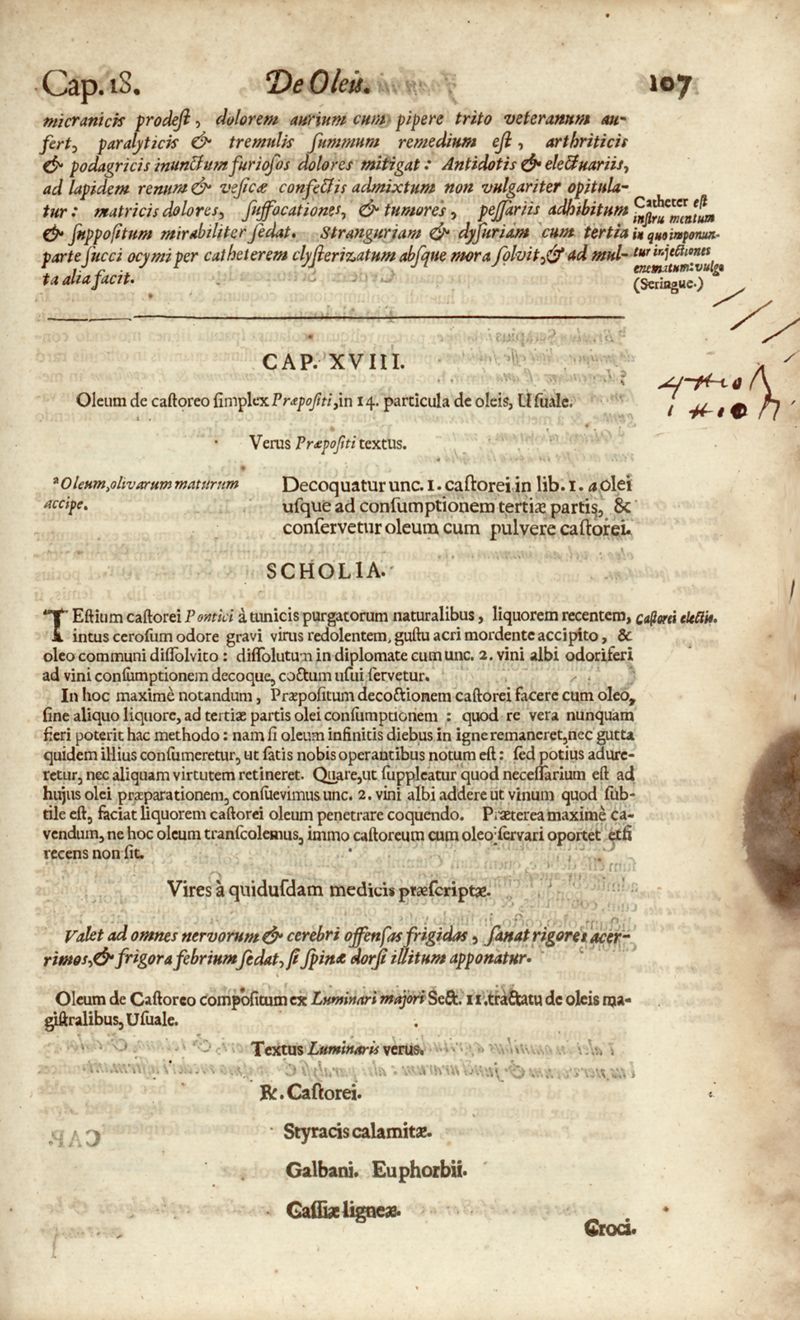 Cap. 18. De Oleis. 107
micranicis prodeſt, dolorem aurium cum pipere trito veteranum au-
fert, paralyticis & tremulis ſummum remedium eſt, arthriticis
& podagricis inunctum furioſos dolores mitigat: Antidotis & electuariis,
ad lapidem renum & veſicæ confectis admixtum non vulgariter opitula-
tur: matricis dolores, ſuffocationes, & tumores, peſſariis adhibitum
& ſuppoſitum mirabiliter ſedat. Stranguriam & dyſuriam cum tertia
parte ſucci ocymi per catheterem clyſterizatum abſque mora ſolvit, & ad mul-
ta alia facit.
Catheter eſt
inſtru mentum
in quo imponun-
tur injectiones
enematum: vulgo
(Seringue.)
CAP. XVIII.
Oleum de caſtoreo ſimplex Præpoſiti, in 14. particula de oleis, Uſuale.
Verus Præpoſiti textus.
ª Oleum, olivarum maturum
accipe.
Decoquatur unc. 1. caſtorei in lib. 1. a olei
uſque ad conſumptionem tertiæ partis, &
conſervetur oleum cum pulvere caſtorei.
SCHOLIA.
TEſtium caſtorei Pontici à tunicis purgatorum naturalibus, liquorem recentem,
intus ceroſum odore gravi virus redolentem, guſtu acri mordente accipito, &
oleo communi diſſolvito: diſſolutum in diplomate cum unc. 2. vini albi odoriferi
ad vini conſumptionem decoque, coctum uſui ſervetur.
caſtorei electio.
In hoc maximè notandum, Præpoſitum decoctionem caſtorei facere cum oleo,
ſine aliquo liquore, ad tertiæ partis olei conſumptionem: quod re vera nunquam
fieri poterit hac methodo: nam ſi oleum infinitis diebus in igne remaneret, nec gutta
quidem illius conſumeretur, ut ſatis nobis operantibus notum eſt: ſed potius adure-
retur, nec aliquam virtutem retineret. Quare, ut ſuppleatur quod neceſſarium eſt ad
hujus olei præparationem, conſuevimus unc. 2. vini albi addere ut vinum quod ſub-
tile eſt, faciat liquorem caſtorei oleum penetrare coquendo. Præterea maximè ca-
vendum, ne hoc oleum tranſcolemus, immo caſtoreum cum oleo ſervari oportet etſi
recens non ſit.
Vires à quiduſdam medicis præſcriptæ.
Valet ad omnes nervorum & cerebri offenſas frigidas, ſanat rigores acer-
rimos, & frigora febrium ſedat, ſi ſpinæ dorſi illitum apponatur.
Oleum de Caſtoreo compoſitum ex Luminari majori Sect. 11. tractatu de oleis ma-
giſtralibus, Uſuale.
Textus Luminaris verus.
℞. Caſtorei.
Styracis calamitæ.
Galbani. Euphorbii.
Caſſiæ ligneæ.
Croci.